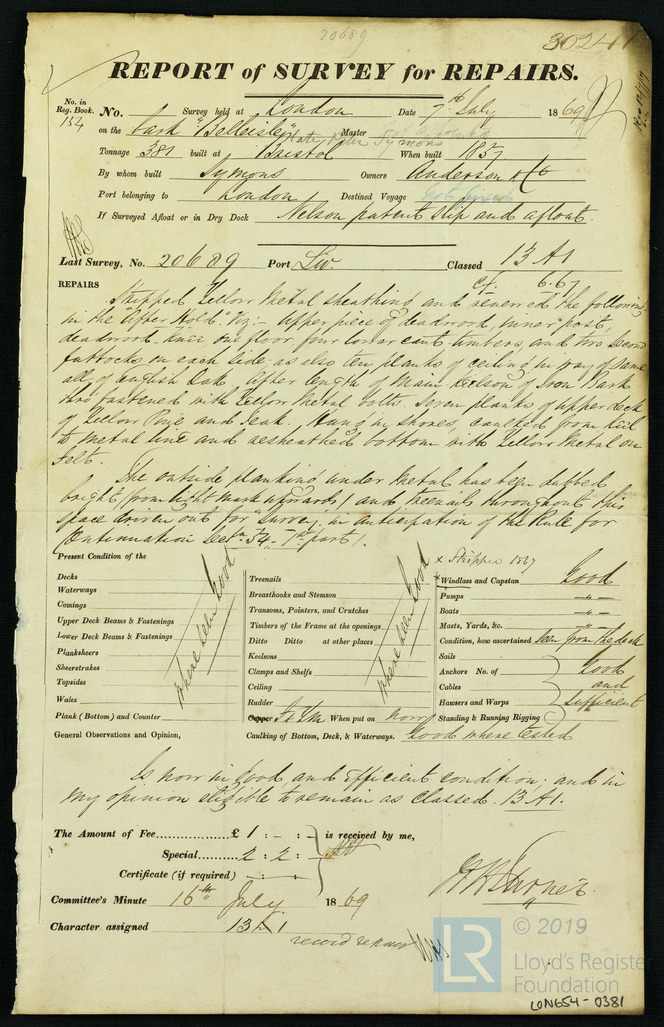 20689
30241
REPORT of SURVEY for REPAIRS.
No. in Reg. Book. 154 No. Survey held at London Date 7th July 1869
on the bark "Belleisle" Master Symons
Tonnage 381 built at Bristol When built 1837
By whom built Symons Owners Anderson & Co
Port belonging to London Destined Voyage
If Surveyed Afloat or in Dry Dock Nelson patent slip and afloat.
Last Survey, No. 20689 Port Liv. Classed 13 A1
c.f. 6.67
REPAIRS
Stripped Yellow Metal sheathing and renewed the following
in the "After Hold." Viz:- upper piece of deadwood, inner post,
deadwood knee one floor four lower cant timbers, and two second
futtocks on each side: as also ten planks of ceiling in way of same
all of English Oak. After length of Main Keelson of Iron Bark
and fastened with Yellow Metal bolts. Seven planks of upper deck
of Yellow Pine and Teak. Hang in shores, caulked from Keel
to metal line and resheathed bottom with Yellow Metal on
Felt.
The outside planking under Metal has been dubbed
bright (from light mark upwards) and treenails throughout this
space driven out for survey, in anticipation of the Rule for
Continuation Sectn 54 - 1st part).
Present Condition of the
Decks
Waterways
Comings
Upper Deck Beams & Fastenings
Lower Deck Beams & Fastenings
Planksheers
Sheerstrakes
Topsides
Wales
Plank (Bottom) and Counter
where seen Good
Treenails
Breasthooks and Stemson
Transoms, Pointers, and Crutches
Timbers of the Frame at the openings
Ditto Ditto at other places
Keelsons
Clamps and Shelfs
Ceiling
Rudder
Copper F & YM When put on now
where seen Good
x Stripped 1867
x Windlass and Capstan Good
Pumps -"-
Boats -"-
Masts, Yards, &c. -"-
Condition, how ascertained seen from the deck
Sails
Anchors No. of Good
Cables and
Hawsers and Warps sufficient
Standing & Running Rigging
General Observations and Opinion,
Caulking of Bottom, Deck, & Waterways. Good where tested
Is now in good and efficient condition; and in
my opinion eligible to remain as classed. 13 A1.
The Amount of Fee £ 1 : - : - is received by me,
Special 2 : 2 : -
Certificate (if required) - : -
Committee's Minute 16th July 1869
Character assigned 13 A1
record repairs
© 2019
LR
Lloyd's Register
Foundation
LON654-0381